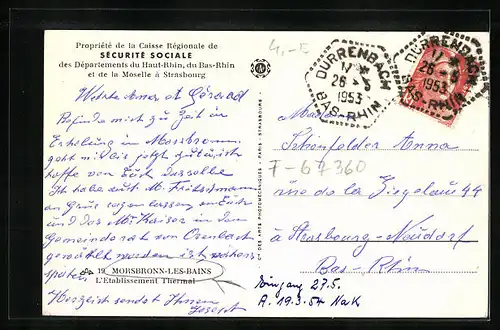 Propriété de la Caisse Régionale de
SÉCURITÉ SOCIALE
des Départements du Haut-Rhin, du Bas-Rhin
et de la Moselle à Strasbourg
4,-E
DURRENBACH
17 *
26 - 5
1953
BAS-RHIN
DURRENBACH
17 *
26 - 5
1953
BAS-RHIN
Werte Anna et Gérard
Befinde mich zur Zeit in
Erholung in Morsbronn.
geht mir bis jetzt gut
hoffe von Euch dasselbe
Ich habe auch M.
an Gruss
und das Mr Kaiser in dem
Gemeinderat von
gewählt worden ist
später
19 MORSBRONN-LES-BAINS
L'Etablissement Thermal
Herzlich sendet Ihnen
Joseph
CIE DES ARTS PHOTOMÉCANIQUES - PARIS - STRASBOURG
Schönfelder Anna
F-67360
rue de la Ziegelau 44
à Strasbourg-Neudorf
Bas-Rhin
Eingang 27.5.
A. 19.3.54 Nak